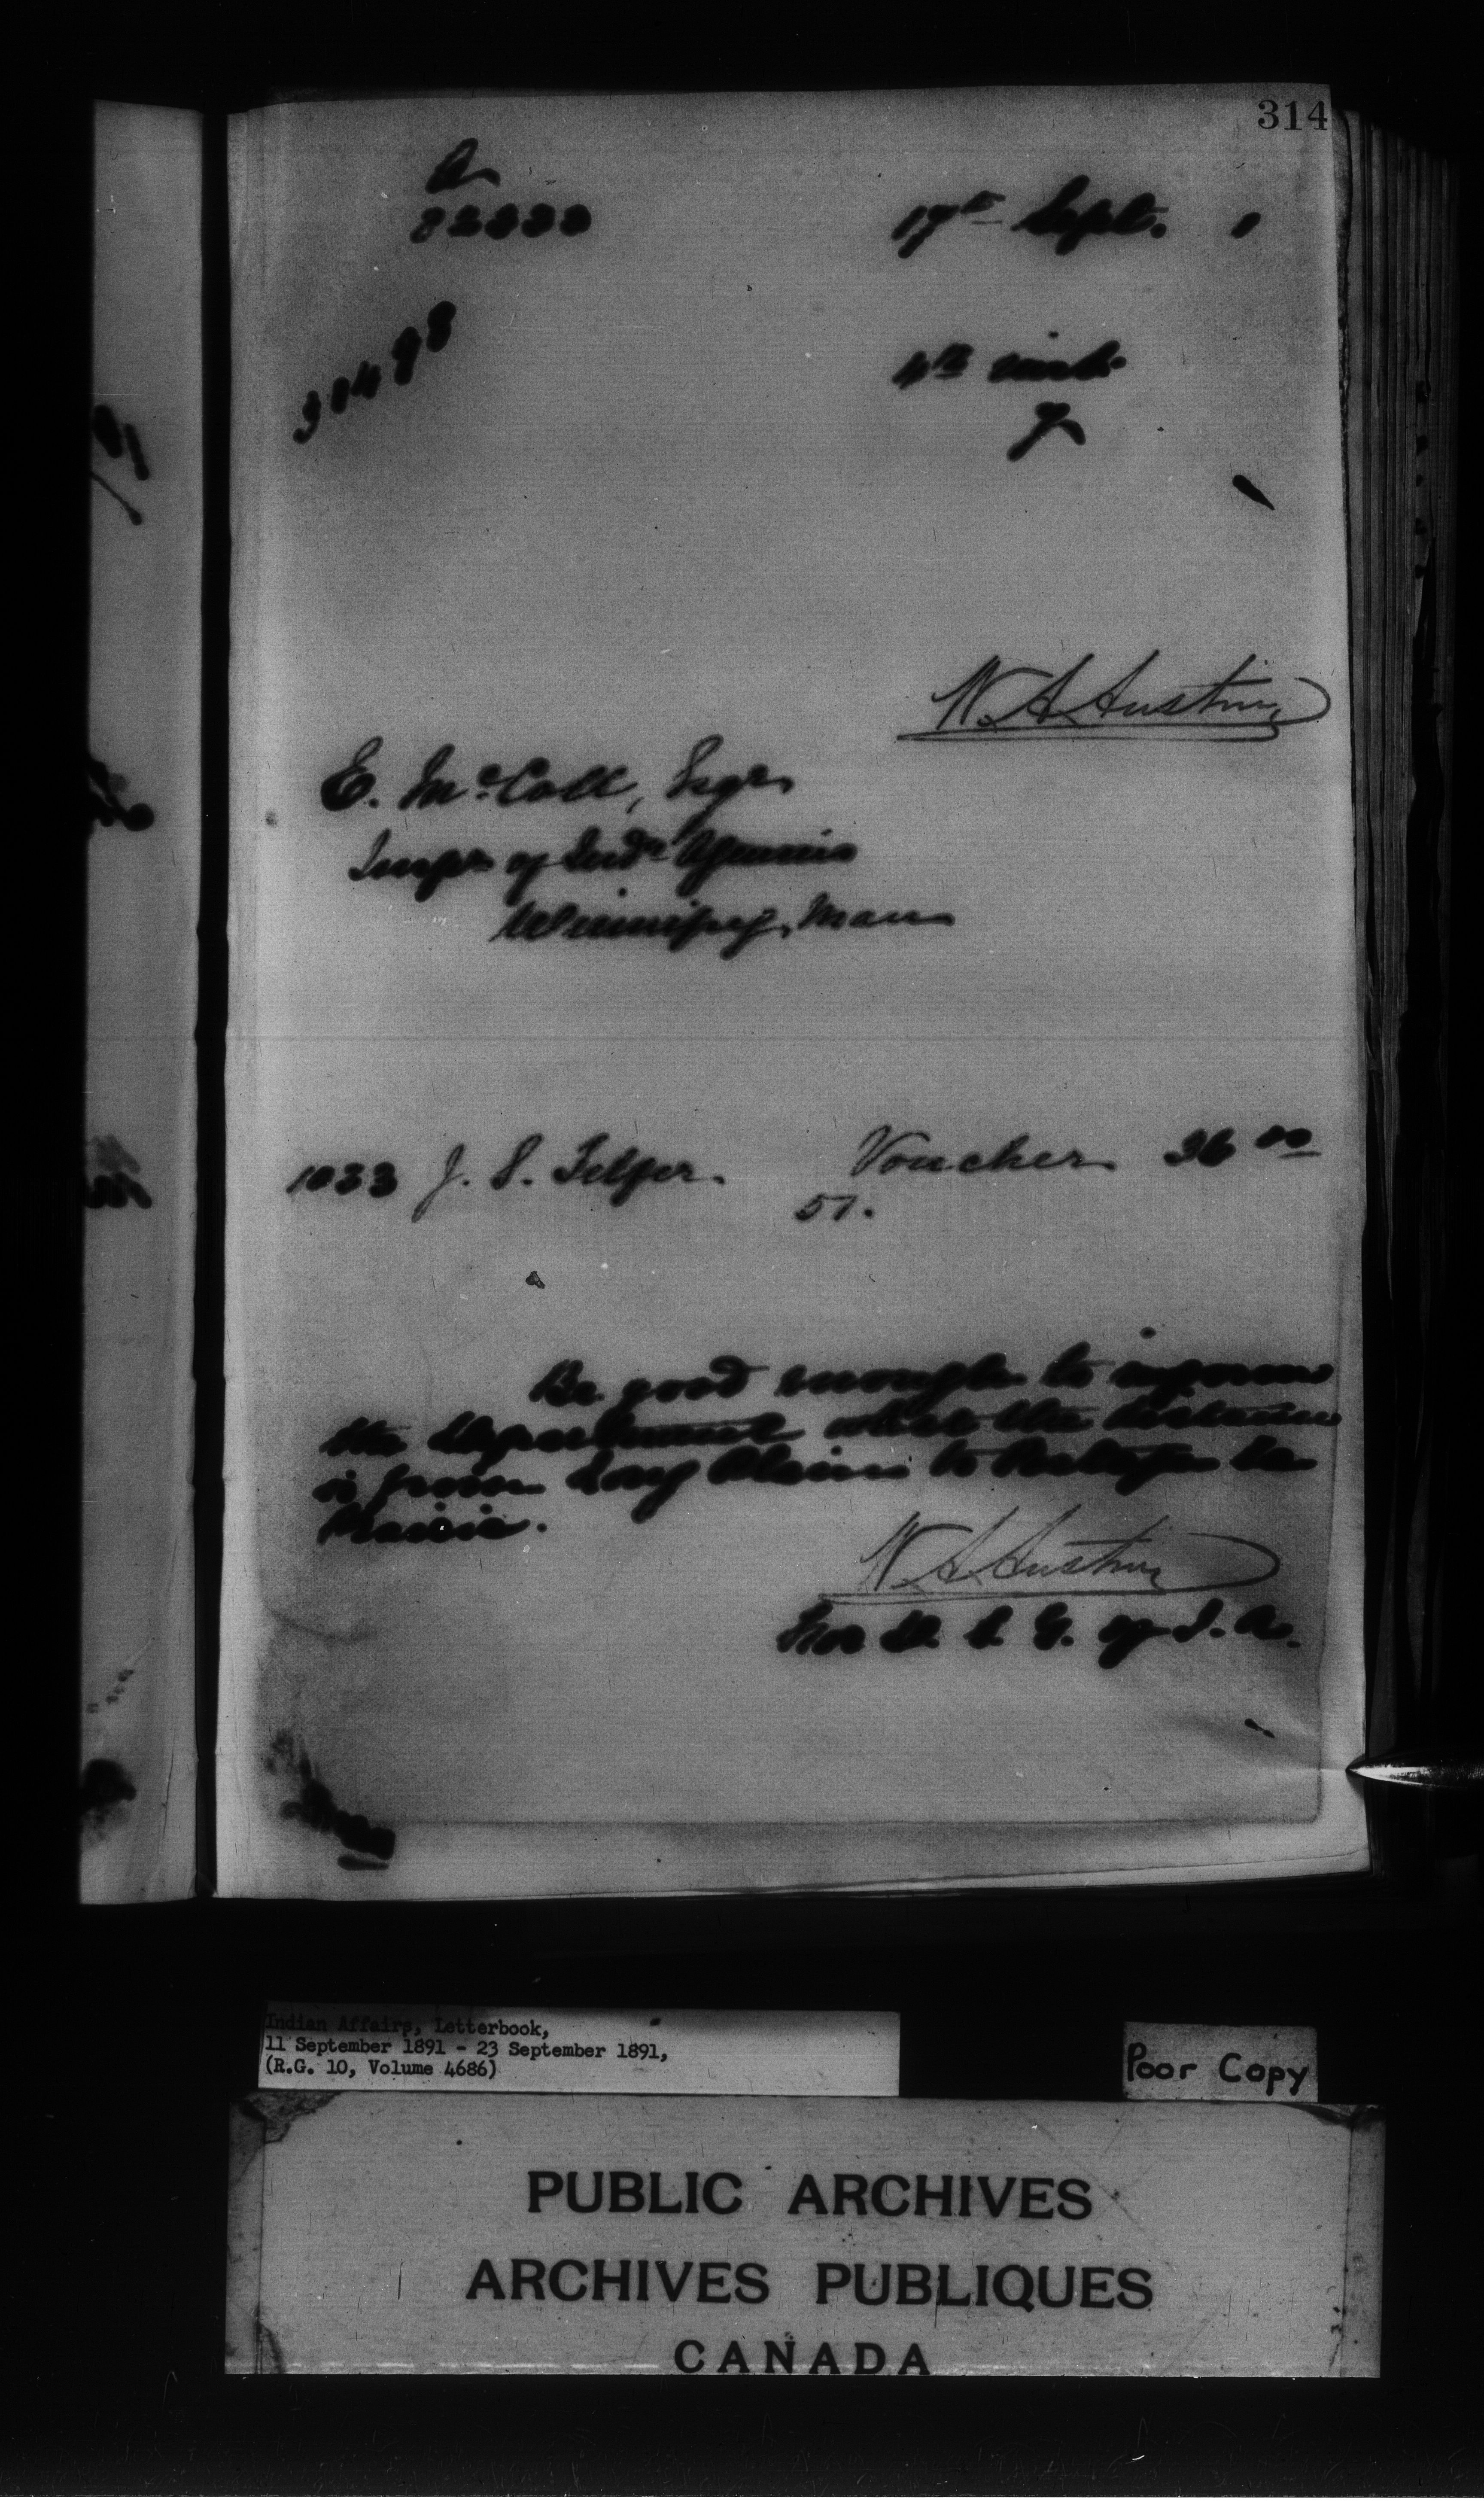 314
A
82333
17th Sept. 1
4th inst.
W. A. Austin
E. McColl, Esqr.
Inspr of Indn Agencies
Winnipeg, Man
1033 J. S. Telfer. Voucher 36 00
51.
Be good enough to inform
the Department what the distance
is from Long Plain to Portage la
Prairie.
W. A. Austin
For D. S. G. of I. A.
Indian Affairs, Letterbook,
11 September 1891 - 23 September 1891,
(R.G. 10, Volume 4686)
Poor Copy
PUBLIC ARCHIVES
ARCHIVES PUBLIQUES
CANADA